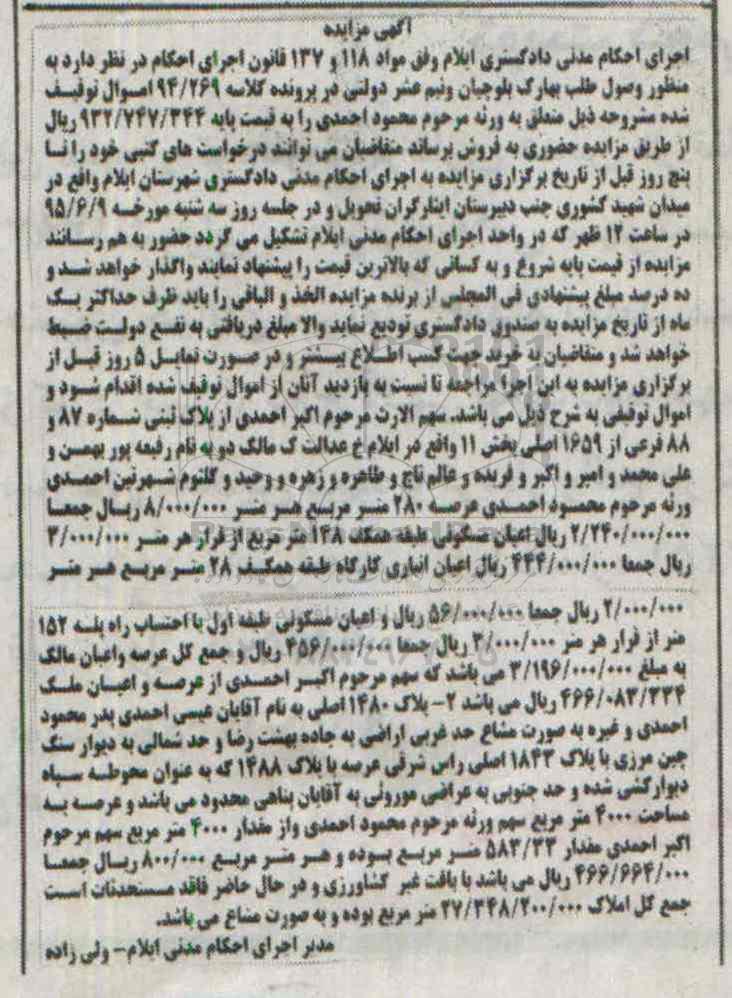 آگهی مزایده
اجرای احکام مدنی دادگستری ایلام وفق مواد ۱۱۸ و ۱۳۷ قانون اجرای احکام در نظر دارد به
منظور وصول طلب بهارک بلوچیان ونیم عشر دولتی در پرونده کلاسه ۹۴/۲۶۹ اموال توقیف
شده مشروحه ذیل متعلق به ورثه مرحوم محمود احمدی را به قیمت پایه ۹۳۲/۷۴۷/۳۴۴ ریال
از طریق مزایده حضوری به فروش برساند متقاضیان می توانند درخواست های کتبی خود را تا
پنج روز قبل از تاریخ برگزاری مزایده به اجرای احکام مدنی دادگستری شهرستان ایلام واقع در
میدان شهید کشوری جنب دبیرستان ایثارگران تحویل و در جلسه روز سه شنبه مورخه ۹۵/۶/۹
در ساعت ۱۲ ظهر که در واحد اجرای احکام مدنی ایلام تشکیل می گردد حضور به هم رسانند
مزایده از قیمت پایه شروع و به کسانی که بالاترین قیمت را پیشنهاد نمایند واگذار خواهد شد و
ده درصد مبلغ پیشنهادی فی المجلس از برنده مزایده الخذ و الباقی را باید ظرف حداکثر یک
ماه از تاریخ مزایده به صندوق دادگستری تودیع نماید والا مبلغ دریافتی به نفع دولت ضبط
خواهد شد و متقاضیان به خرید جهت کسب اطلاع بیشتر و در صورت تمایل ۵ روز قبل از
برگزاری مزایده به این اجرا مراجعه تا نسبت به بازدید آنان از اموال توقیف شده اقدام شود و
اموال توقیفی به شرح ذیل می باشد. سهم الارث مرحوم اکبر احمدی از پلاک ثبتی شماره ۸۷ و
۸۸ فرعی از ۱۶۵۹ اصلی بخش ۱۱ واقع در ایلام خ عدالت ک مالک دو به نام رفیعه پور بهمن و
علی محمد و امیر و اکبر و فریده و عالم تاج و طاهره و زهره و وحید و کلثوم شهرتین احمدی
ورثه مرحوم محمود احمدی عرصه ۲۸۰ متر مربع هر متر ۸/۰۰۰/۰۰۰ ریال جمعا
۲/۲۴۰/۰۰۰/۰۰۰ ریال اعیان مسکونی طبقه همکف ۱۴۸ متر مربع از قرار هر متر ۳/۰۰۰/۰۰۰
ریال جمعا ۴۴۴/۰۰۰/۰۰۰ ریال اعیان انباری کارگاه طبقه همکف ۲۸ متر مربع هر متر
۲/۰۰۰/۰۰۰ ریال جمعا ۵۶/۰۰۰/۰۰۰ ریال و اعیان مسکونی طبقه اول با احتساب راه پله ۱۵۲
متر از قرار هر متر ۳/۰۰۰/۰۰۰ ریال جمعا ۴۵۶/۰۰۰/۰۰۰ ریال و جمع کل عرصه واعیان مالک
به مبلغ ۳/۱۹۶/۰۰۰/۰۰۰ می باشد که سهم مرحوم اکبر احمدی از عرصه و اعیان ملک
۴۶۶/۰۸۳/۳۳۴ ریال می باشد ۲- پلاک ۱۴۸۰ اصلی به نام آقایان عیسی احمدی پدر محمود
احمدی و غیره به صورت مشاع حد غربی اراضی به جاده بهشت رضا و حد شمالی به دیوار سنگ
چین مرزی با پلاک ۱۸۴۳ اصلی راس شرقی عرصه با پلاک ۱۴۸۸ که به عنوان محوطه سپاه
دیوارکشی شده و حد جنوبی به عراضی موروثی به آقایان پناهی محدود می باشد و عرصه به
مساحت ۴۰۰۰ متر مربع سهم ورثه مرحوم محمود احمدی واز مقدار ۴۰۰۰ متر مربع سهم مرحوم
اکبر احمدی مقدار ۵۸۳/۳۳ متر مربع بوده و هر متر مربع ۸۰۰/۰۰۰ ریال جمعا
۴۶۶/۶۶۴/۰۰۰ ریال می باشد با بافت غیر کشاورزی و در حال حاضر فاقد مستحدثات است
جمع کل املاک ۲۷/۳۴۸/۲۰۰/۰۰۰ متر مربع بوده و به صورت مشاع می باشد.
مدیر اجرای احکام مدنی ایلام- ولی زاده